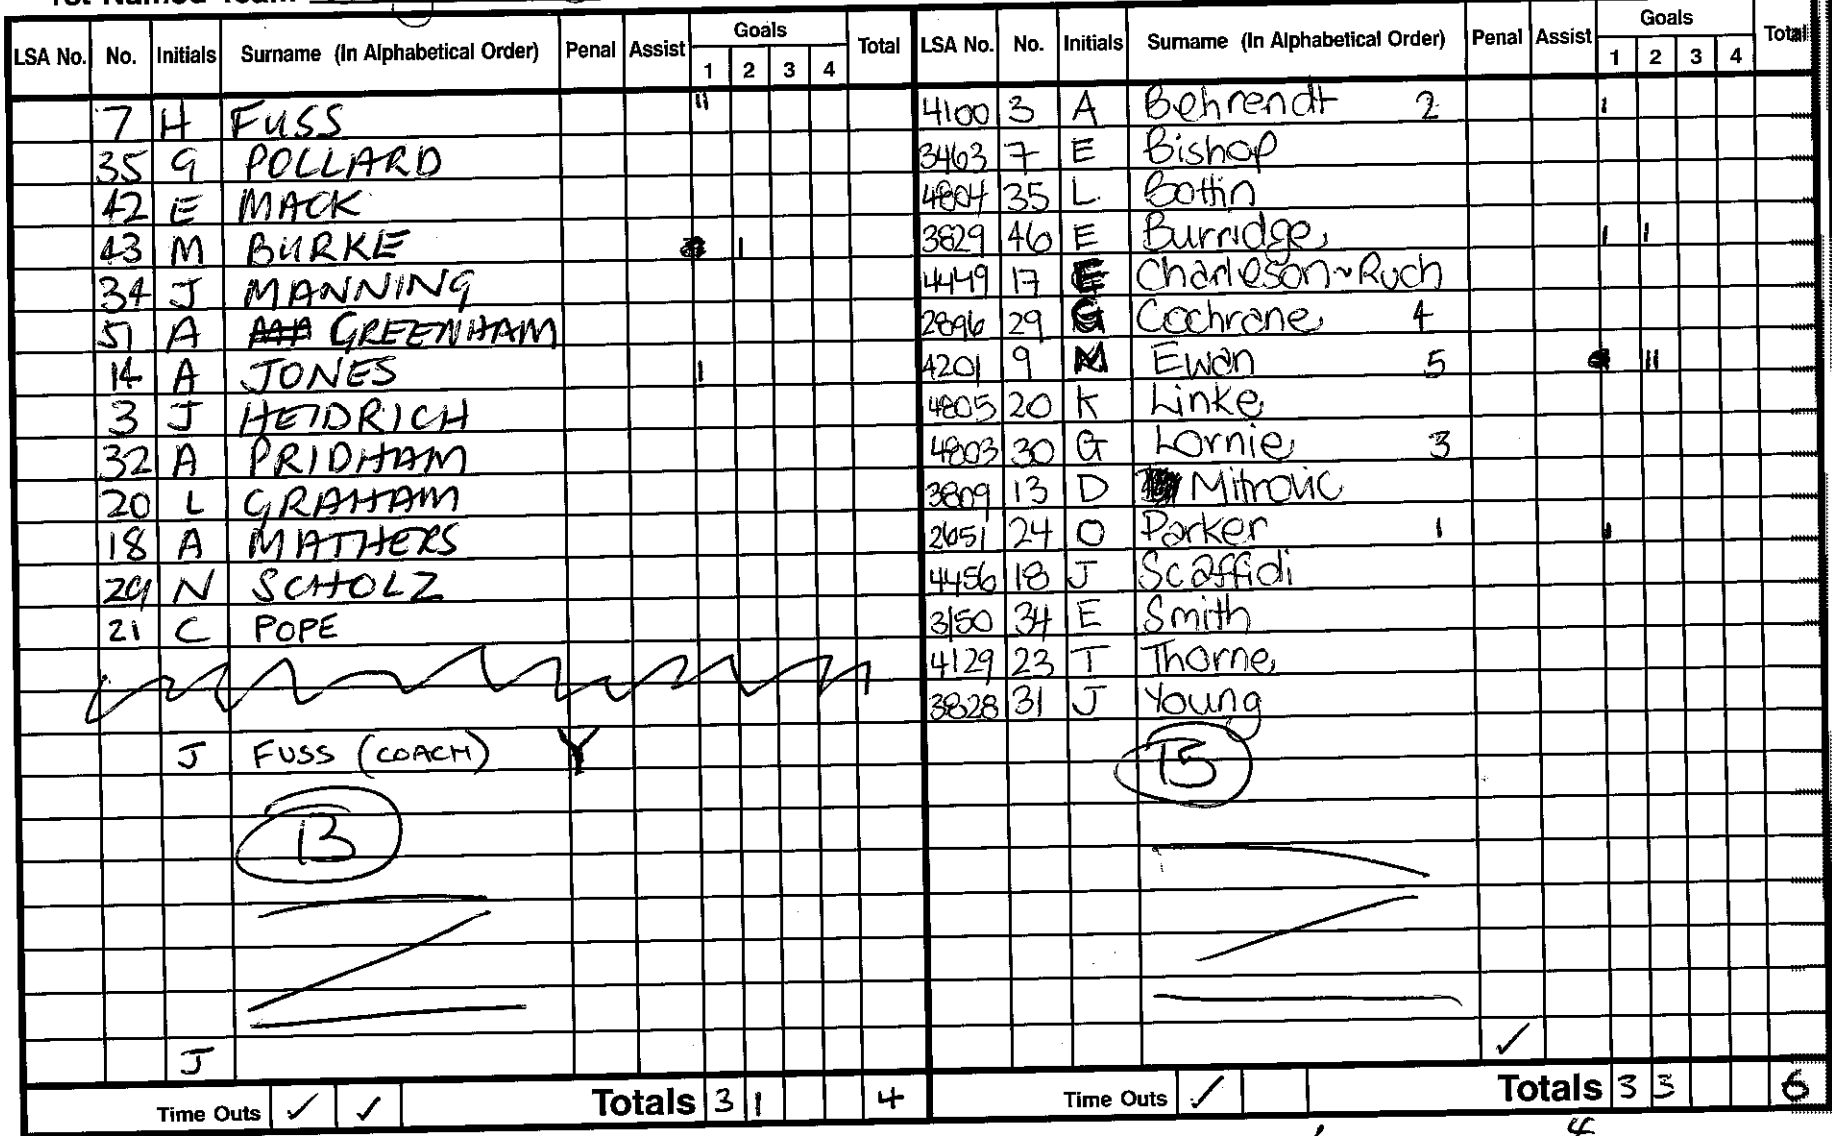 1st Named Team
LSA No. No. Initials Surname (In Alphabetical Order) Penal Assist Goals 1 2 3 4 Total
7 H FUSS 11
35 G POLLARD
42 E MACK
43 M BURKE 1
34 J MANNING
51 A GREENHAM
14 A JONES 1
3 J HEIDRICH
32 A PRIDHAM
20 L GRAHAM
18 A MATHERS
29 N SCHOLZ
21 C POPE
J FUSS (COACH) Y
13
J
Time Outs ✓ ✓ Totals 3 1 4
LSA No. No. Initials Surname (In Alphabetical Order) Penal Assist Goals 1 2 3 4 Total
4100 3 A Behrendt 2 1
3463 7 E Bishop
4804 35 L Bottin
3829 46 E Burridge 1 1
4449 17 E Charleson-Ruch
2896 29 G Cochrane 4
4201 9 M Ewan 5 11
4805 20 K Linke
4803 30 G Lornie 3
3809 13 D Mitrovic
2651 24 O Parker 1 1
4456 18 J Scaffidi
3150 34 E Smith
4129 23 T Thorne
3828 31 J Young
15
✓
Time Outs ✓ Totals 3 3 6
4